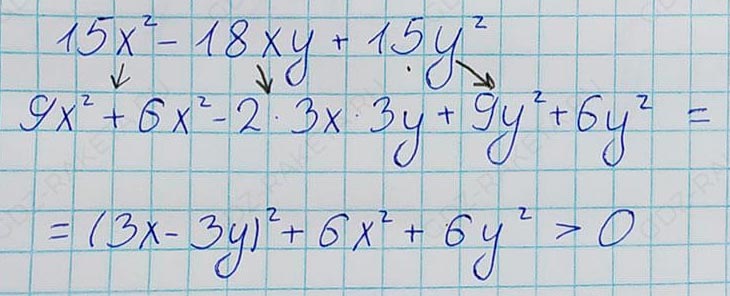 15x² - 18xy + 15y²
9x² + 6x² - 2 · 3x · 3y + 9y² + 6y² =
= (3x - 3y)² + 6x² + 6y² > 0